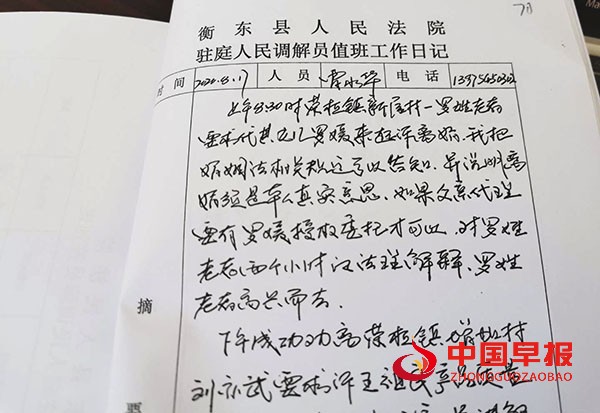 78
衡东县人民法院
驻庭人民调解员值班工作日记
时间 2020.8.17 人员 电话
上午8:30时荣桓镇新屋村一罗姓老者
要求代其女儿罗媛来起诉离婚,我把
婚姻法相关规定予以告知,并说明离
婚须是本人真实意思,如果父亲代理
要有罗媛授权委托才可以,对罗姓
老者两个小时汉法理解释,罗姓
老者高兴而去。
摘
下午成功劝离荣桓镇 村
刘亦武要求诉王祖民
要
中国早报
ZHONGGUOZAOBAO